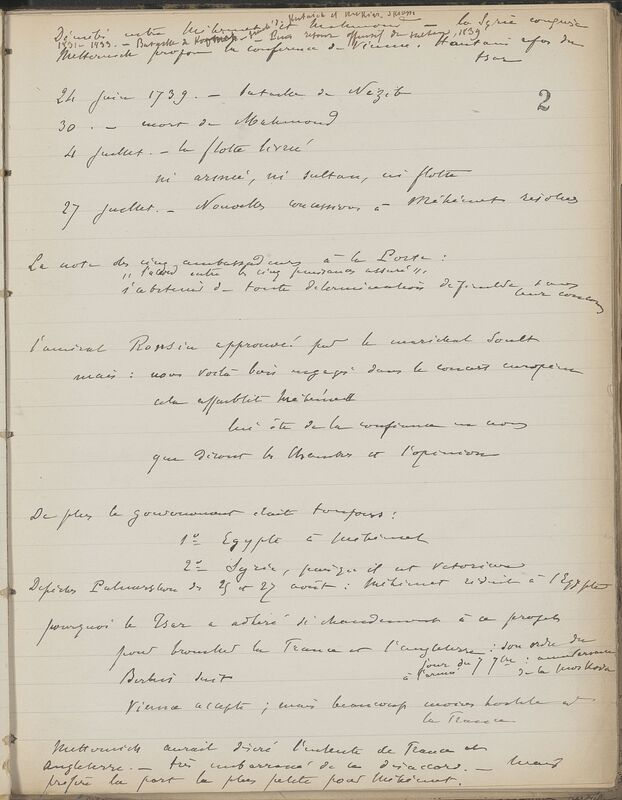 Démêlés entre Méhémet et Mahmoud — la Syrie conquise
1831-1833. — Bataille de — Bus retour offensif du sultan, 1839
Metternich propose la conférence de Vienne. Hautain refus du
tsar
2
24 juin 1739. — bataille de Nézib
30. — mort de Mahmoud
4 juillet. — la flotte livrée
ni armée, ni sultan, ni flotte
27 juillet. — Nouvelles concessions à Méhémet résolues
La note des cinq ambassadeurs à la Porte :
"l'accord entre les cinq puissances assuré",
s'abstenir de toute détermination définitive sans
leur concours
l'amiral Roussin approuvé par le maréchal Soult
mais : nous voilà bien engagés dans le concert européen
cela affaiblit Méhémet
lui ôte de la confiance en nous
que diront les Chambres et l'opinion
De plus le gouvernement était toujours :
1° Egypte à Méhémet
2° Syrie, puisqu'il est victorieux
Dépêches Palmerston des 25 et 27 août : Méhémet réduit à l'Egypte
pourquoi le Tsar a adhéré si chaudement à ce projet
pour brouiller la France et l'Angleterre : son ordre du
jour du 7 7bre : anniversaire
à l'armée de la Moskova
Berlin suit
Vienne accepte ; mais beaucoup moins hostile à
la France
Metternich aurait désiré l'entente de France et
Angleterre. — très embarrassé de ce désaccord. — mais
préfère la part la plus petite pour Méhémet.